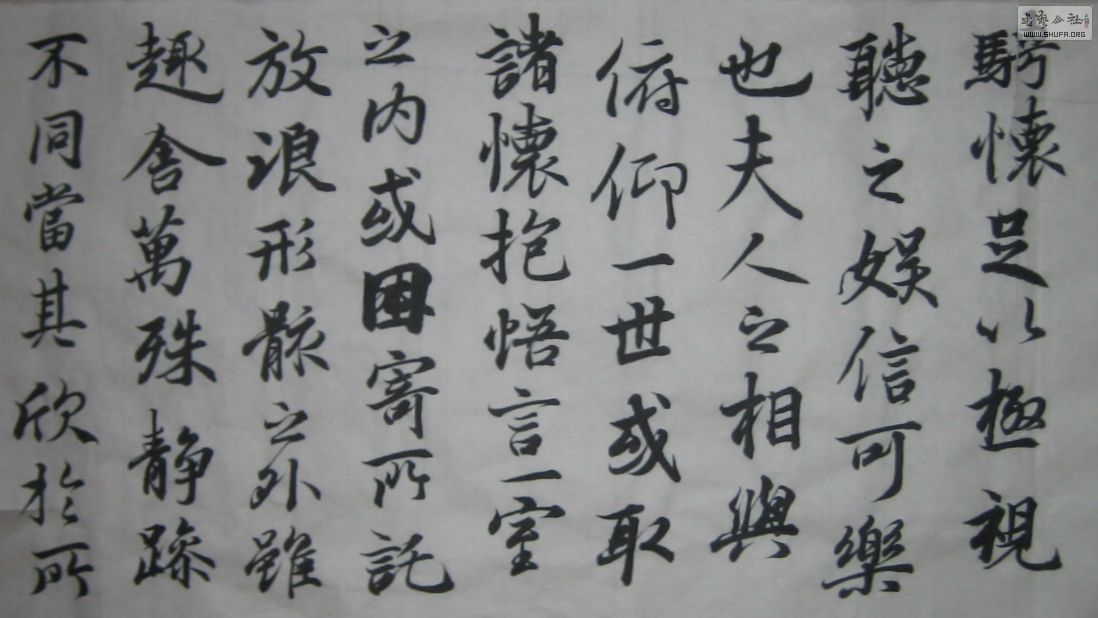 騁懷足以極視
聽之娱信可樂
也夫人之相與
俯仰一世或取
諸懷抱悟言一室
之内或因寄所託
放浪形骸之外雖
趣舍萬殊静躁
不同當其欣於所
書藝公社
WWW.SHUFA.ORG